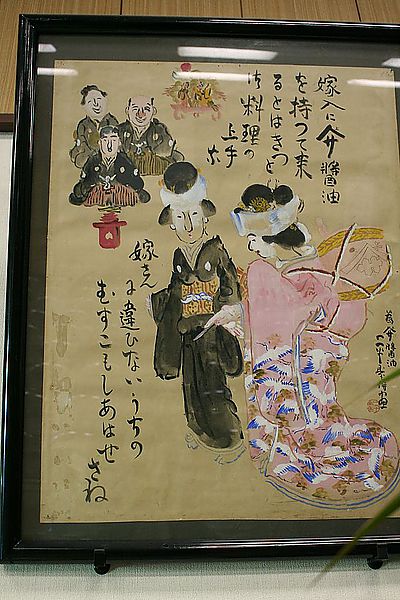 嫁入に
醤油
を持つて来
るとはきつと
御料理の
上手な
嫁さん
に違ひないうちの
むすこもしあはせ
さね
醤油